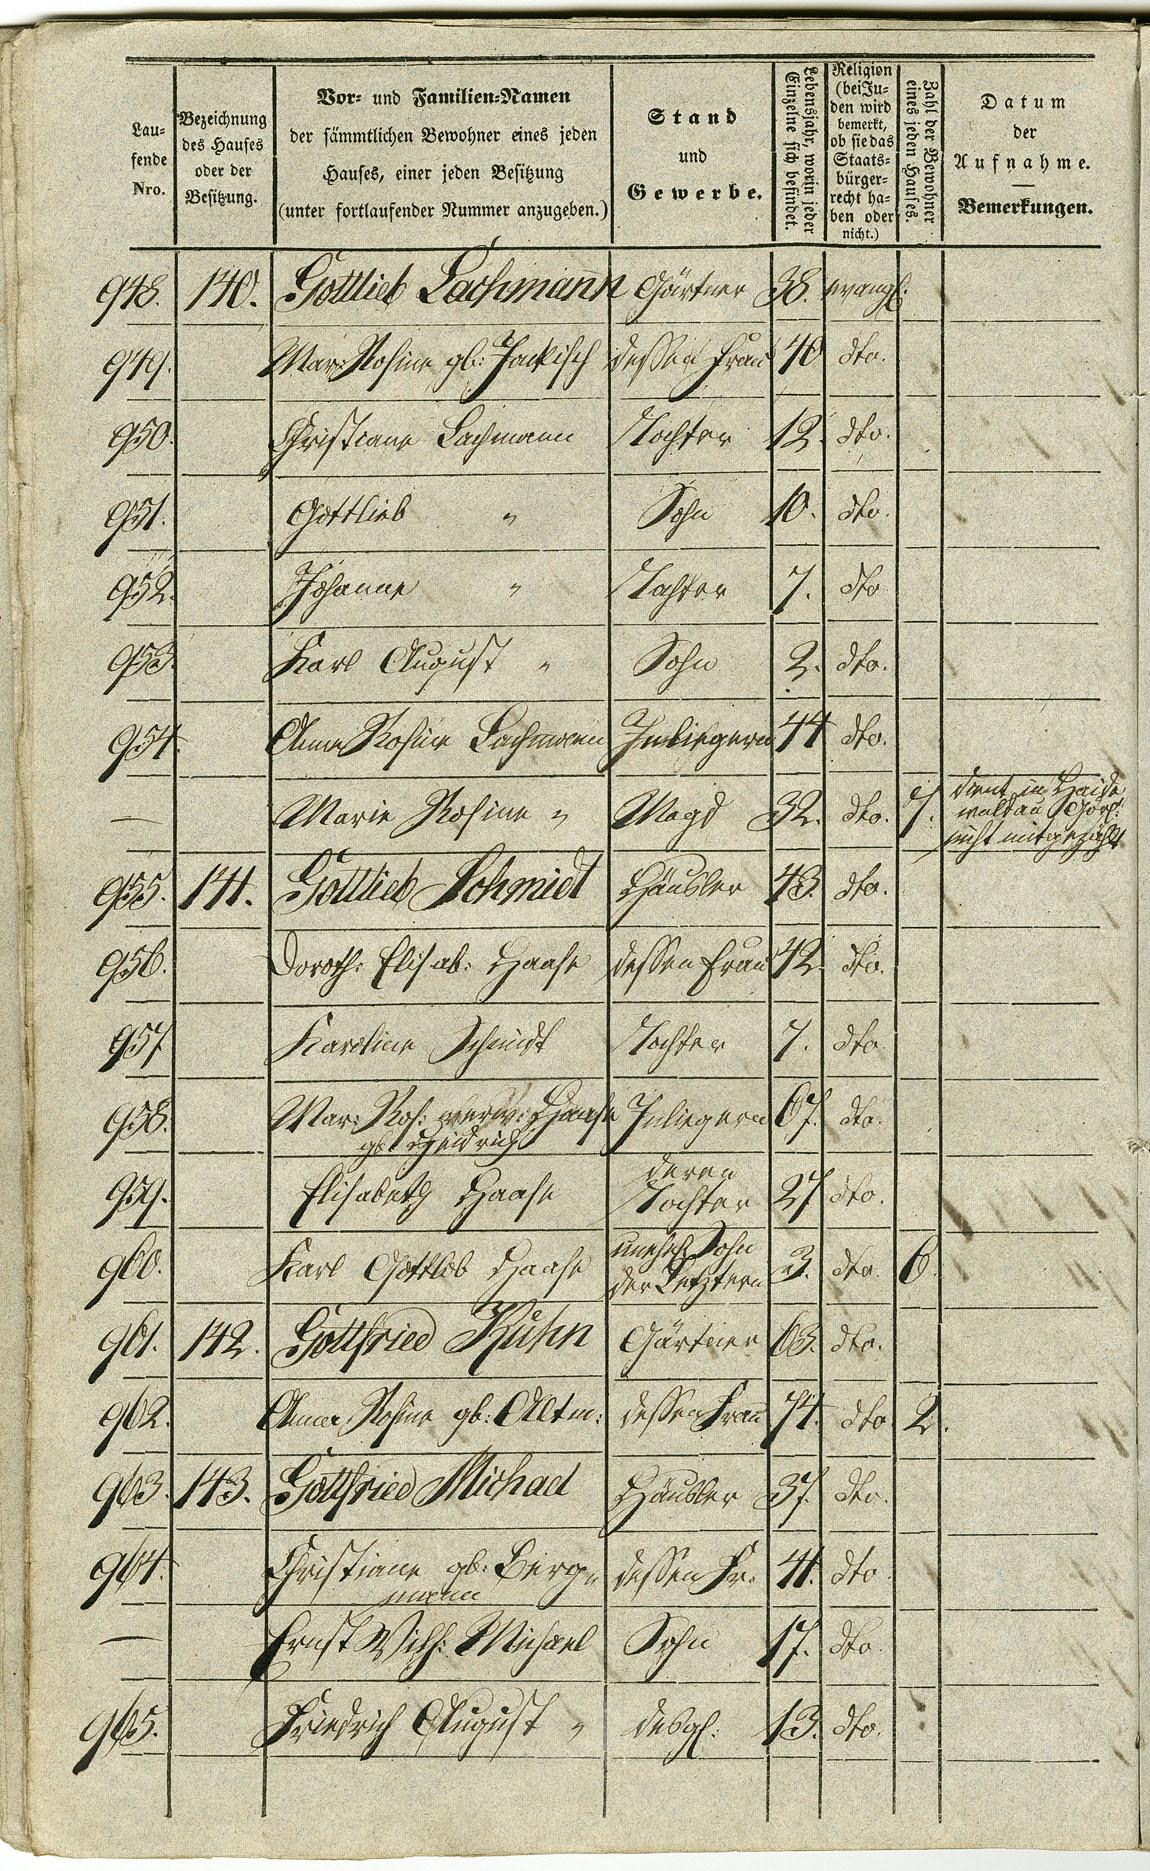 Laufende Nro.
Bezeichnung des Hauses oder der Besitzung.
Vor- und Familien-Namen
der sämmtlichen Bewohner eines jeden
Hauses, einer jeden Besitzung
(unter fortlaufender Nummer anzugeben.)
Stand
und
Gewerbe.
Lebensjahr, worin jeder Einzelne sich befindet.
Religion (bei Juden wird bemerkt, ob sie das Staatsbürgerrecht haben oder nicht.)
Zahl der Bewohner eines jeden Hauses.
Datum
der
Aufnahme.
Bemerkungen.
948. 140. Gottlieb Lachmann Gärtner 38. evangl:
949. Mar: Rosine gb: Jackisch dessen Frau 40 dto.
950. Christiane Lachmann Tochter 12. dto.
951. Gottlieb " Sohn 10. dto.
952. Johanne " Tochter 7. dto
953. Karl August " Sohn 2. dto.
954. Anna Rosine Lachmann Inliegern 44 dto.
— Marie Rosine " Magd 32. dto. 7. dient in Haide
waldau
nicht mitgezählt
955. 141. Gottlieb Schmidt Häusler 43. dto.
956. Doroth: Elisab: Haase dessen Frau 42. dto.
957 Karoline Schmidt Tochter 7. dto
958. Mar: Ros: verw: Haase Inliegern 67. dto.
gb Heidrich
959. Elisabeth Haase deren Tochter 27 dto.
960. Karl Gottlob Haase unehel Sohn der Letztern 3. dto. 6.
961. 142. Gottfried Kühn Gärtner 63. dto.
962. Anna Rosine gb: Altm: dessen Frau 74. dto 2.
963. 143. Gottfried Michael Häusler 37. dto.
964. Christiane gb: Berg= dessen Fr. 41. dto.
mann
— Ernst Wilh: Michael Sohn 17. dto.
965. Friedrich August " desgl: 13. dto.